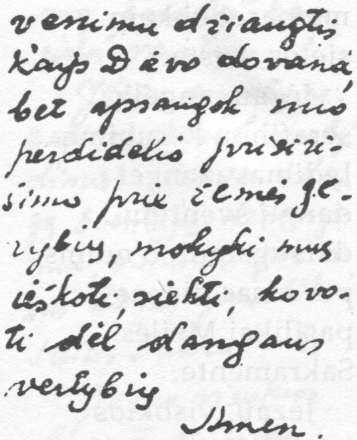 venimu džiaugtis
kaip Dievo dovana,
bet apsaugok nuo
perdidelio prisiri-
šimo prie žemės gė-
rybių, mokyki mus
ieškoti, siekti, kovo-
ti dėl dangaus
vertybių
Amen.